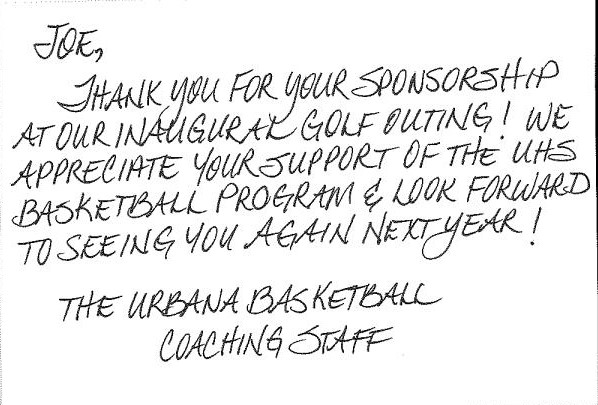 JOE,
THANK YOU FOR YOUR SPONSORSHIP
AT OUR INAUGURAL GOLF OUTING! WE
APPRECIATE YOUR SUPPORT OF THE UHS
BASKETBALL PROGRAM & LOOK FORWARD
TO SEEING YOU AGAIN NEXT YEAR!
THE URBANA BASKETBALL
COACHING STAFF